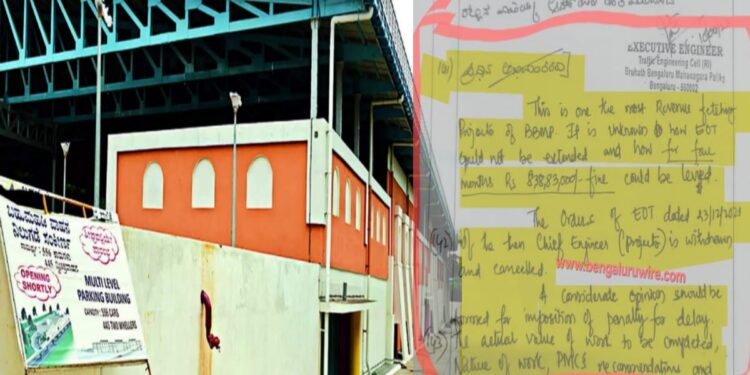 ನಿಲುಗಡೆ
OPENING
SHORTLY!
MULTI LEVEL
PARKING BUILDING
CAPACITY: 556 CARS
445 TWO WHEELERS
EXECUTIVE ENGINEER
Traffic Engineering Cell (RI)
Bruhath Bengaluru Mahanagara Palike
Bengaluru - 560002
This is one the most Revenue fetching
Projects of BBMP. It is unknown how EOT
could not be extended and how for five
months Rs 8,38,83,000/- fine could be levied.
The Orders of EOT dated 23/12/2021
of the then Chief Engineer (projects) is withdrawn
and cancelled.
www.bengaluruwire.com
A considerate opinion should be
formed for imposition of penalty for delay,
the actual value of work to be completed,
Nature of work, PMC's recommendations and